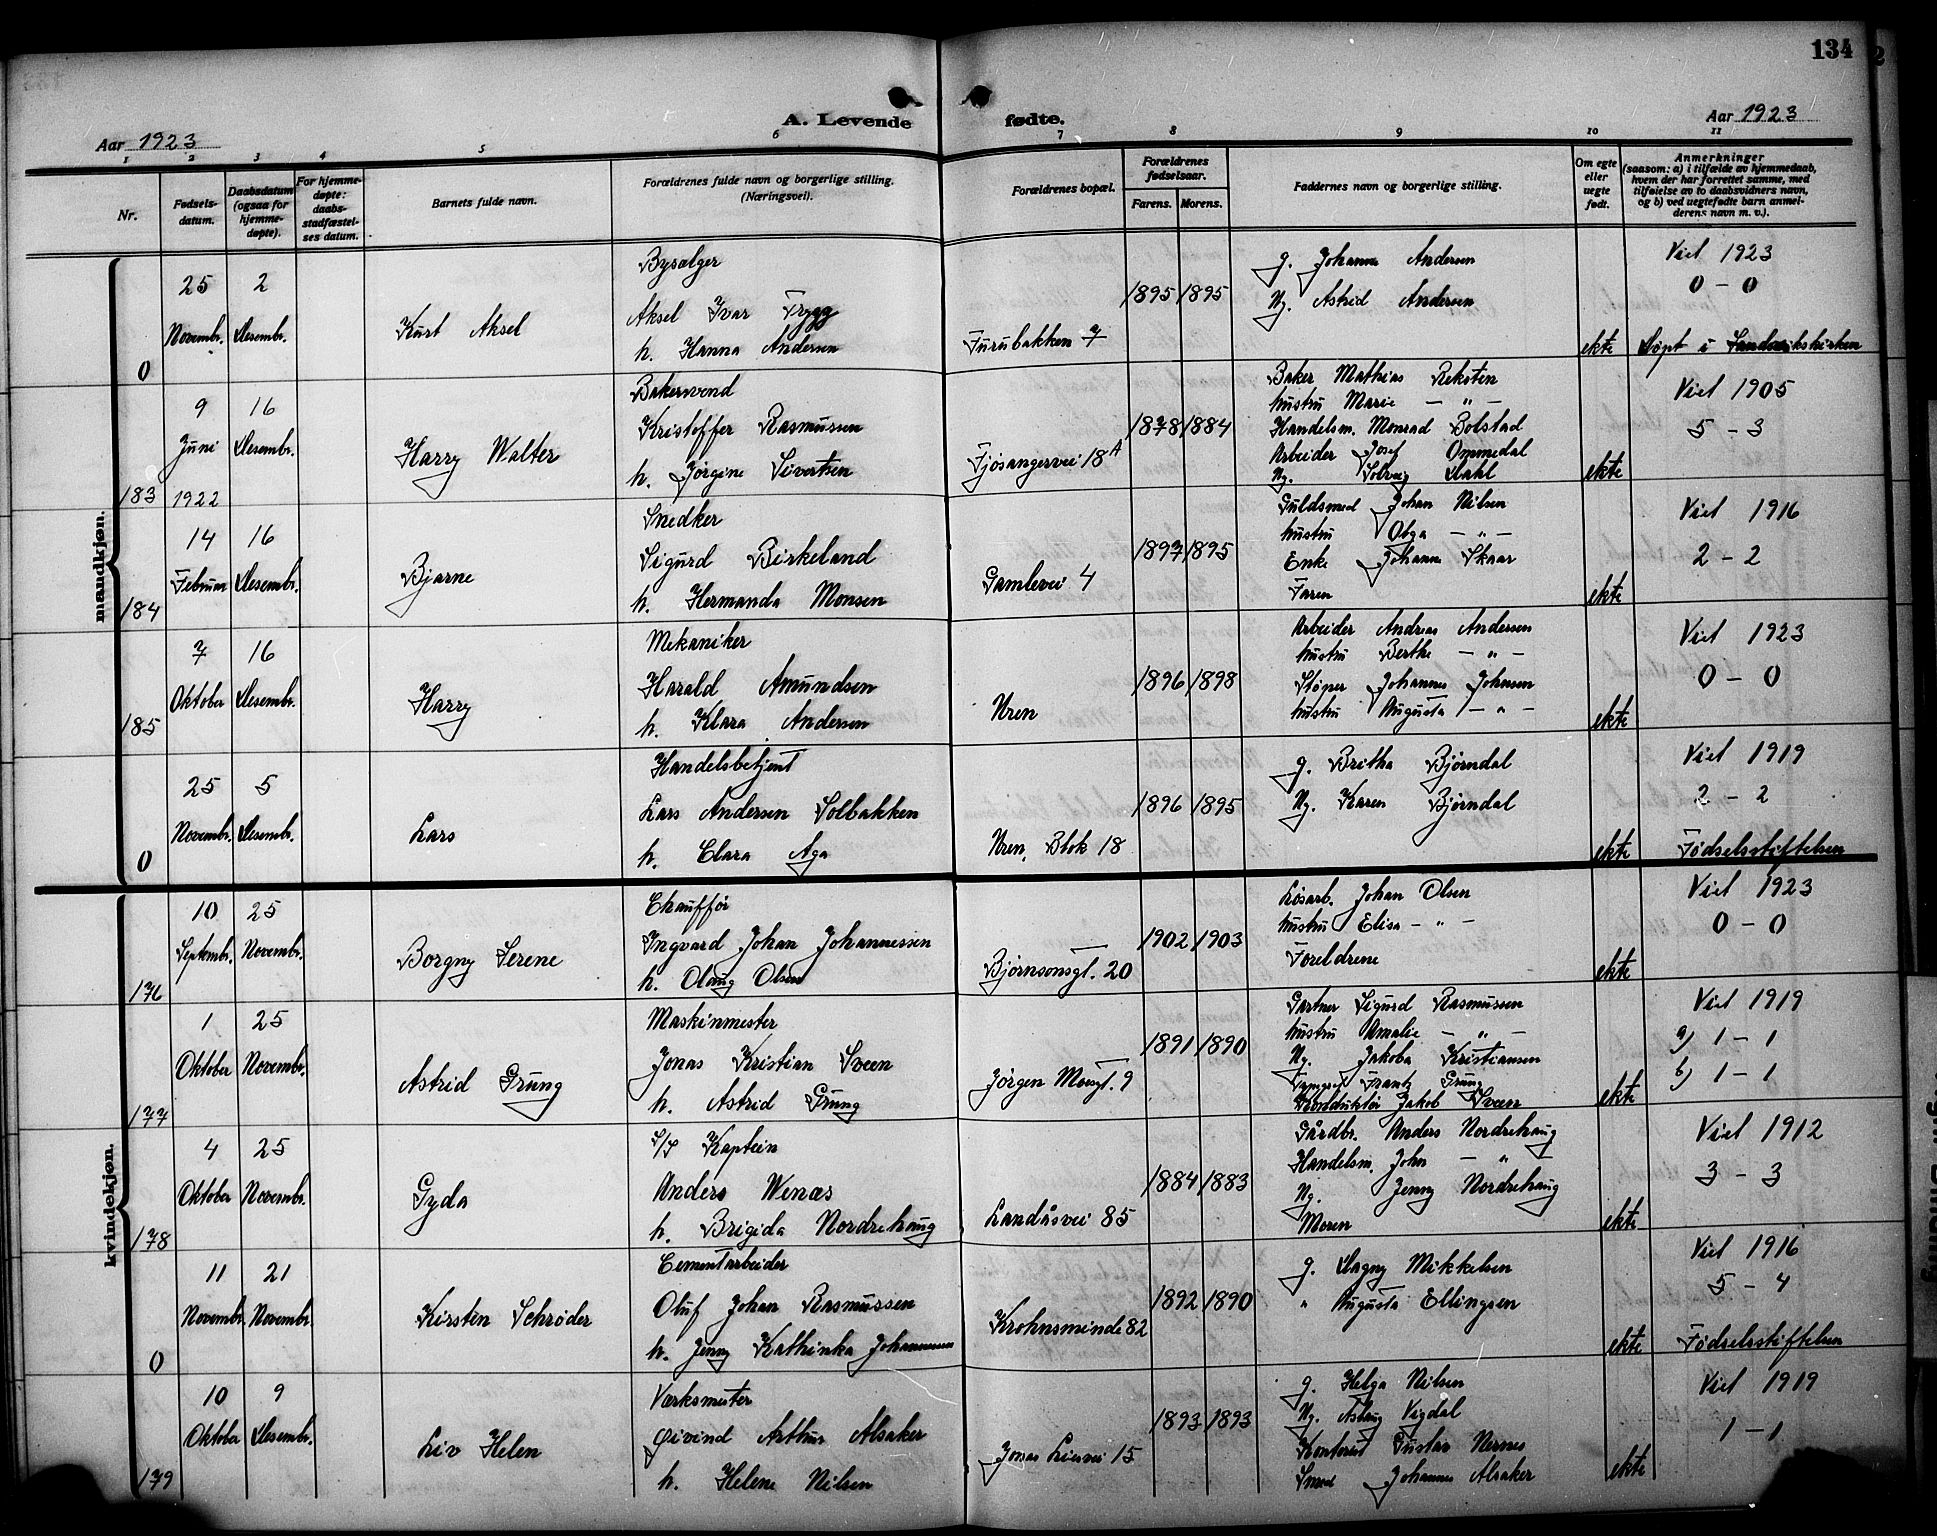 134
A. Levende fødte.
Aar 1923
Aar 1923
1 2 3 4 5 6 7 8 9 10 11
Nr.
Fødsels-
datum.
Daabsdatum
(ogsaa for
hjemme-
døpte).
For hjemme-
døpte:
daabs-
stadfæstel-
ses datum.
Barnets fulde navn.
Forældrenes fulde navn og borgerlige stilling.
(Næringsvei).
Forældrenes bopæl.
Forældrenes
fødselsaar.
Farens. Morens.
Faddernes navn og borgerlige stilling.
Om egte
eller
uegte
født.
Anmerkninger
(saasom: a) i tilfælde av hjemmedaab,
hvem der har forrettet samme, med
tilføielse av to daabsvidners navn,
og b) ved uegtefødte barn anmel-
derens navn m. v.).
mandkjøn.
0
25 Novembr.
2 Desembr.
Kurt Aksel
Bysælger
Aksel Ivar Trygg
h. Hanna Andersen
Furubakken 7
1895 1895
g. Johanna Andersen
Ug. Astrid Andersen
ekte
Viet 1923
0 - 0
Døpt i Sandvikskirken
183
9 Juni 1922
16 Desembr.
Harry Walter
Bakersvend
Kristoffer Rasmussen
h. Jørgine Sivertsen
Fjøsangervei 18A
1878 1884
Baker Mathias Reksten
hustru Marie - " -
Handelsm. Monrad Bolstad
Arbeider Josef Ommedal
Ug. Solveig Dahl
ekte
Viet 1905
5 - 3
184
14 Februar
16 Desembr.
Bjarne
Snedker
Sigurd Birkeland
h. Hermanda Monsen
Gamlevei 4
1897 1895
Guldsmed Johan Nilsen
hustru Olga - " -
Enke Johanne Skaar
Faren
ekte
Viet 1916
2 - 2
185
7 Oktober
16 Desembr.
Harry
Mekaniker
Harald Amundsen
h. Klara Andersen
Uren
1896 1898
Arbeider Andreas Andersen
hustru Berthe - " -
Støper Johannes Johnsen
hustru Augusta - " -
ekte
Viet 1923
0 - 0
0
25 Novembr.
5 Desembr.
Lars
Handelsbetjent
Lars Andersen Solbakken
h. Clara Aga
Uren, Blok 18
1896 1895
g. Britha Bjørndal
Ug. Karen Bjørndal
ekte
Viet 1919
2 - 2
Fødselsstiftelsen
kvindekjøn.
176
10 Septembr.
25 Novembr.
Borgny Serene
Chauffør
Ingvard Johan Johannessen
h. Olaug Olsen
Bjørnsonsgt. 20
1902 1903
Løsarb. Johan Olsen
hustru Elisa - " -
Foreldrene
ekte
Viet 1923
0 - 0
177
1 Oktober
25 Novembr.
Astrid Grung
Maskinmester
Jonas Kristian Sveen
h. Astrid Grung
Jørgen Moesgt. 9
1891 1890
Gartner Sigurd Rasmussen
hustru Amalie - " -
Ug. Jakoba Kristiansen
Frantz Grung
Konduktør Jakob Sveen
ekte
Viet 1919
a) 1 - 1
b) 1 - 1
178
4 Oktober
25 Novembr.
Gyda
Kaptein
Anders Wenæs
h. Brigida Nordrehaug
Landåsvei 85
1884 1883
Gårdbr. Anders Nordrehaug
Handelsm. John - " -
Ug. Jenny Nordrehaug
Moren
ekte
Viet 1912
3 - 3
0
11 Novembr.
21 Novembr.
Kirsten Schrøder
Cementarbeider
Oluf Johan Rasmussen
h. Jenny Kathinka Johannessen
Krohnsminde 82
1892 1890
g. Dagny Mikkelsen
" Augusta Ellingsen
ekte
Viet 1916
5 - 4
Fødselsstiftelsen
179
10 Oktober
9 Desembr.
Liv Helen
Værksmester
Øivind Arthur Alsaker
h. Helene Nilsen
Jonas Liesvei 15
1893 1893
g. Helga Nilsen
Ug. Aslaug Vigdal
Kontorist Gustav Nernes
Smed Johannes Alsaker
ekte
Viet 1919
1 - 1